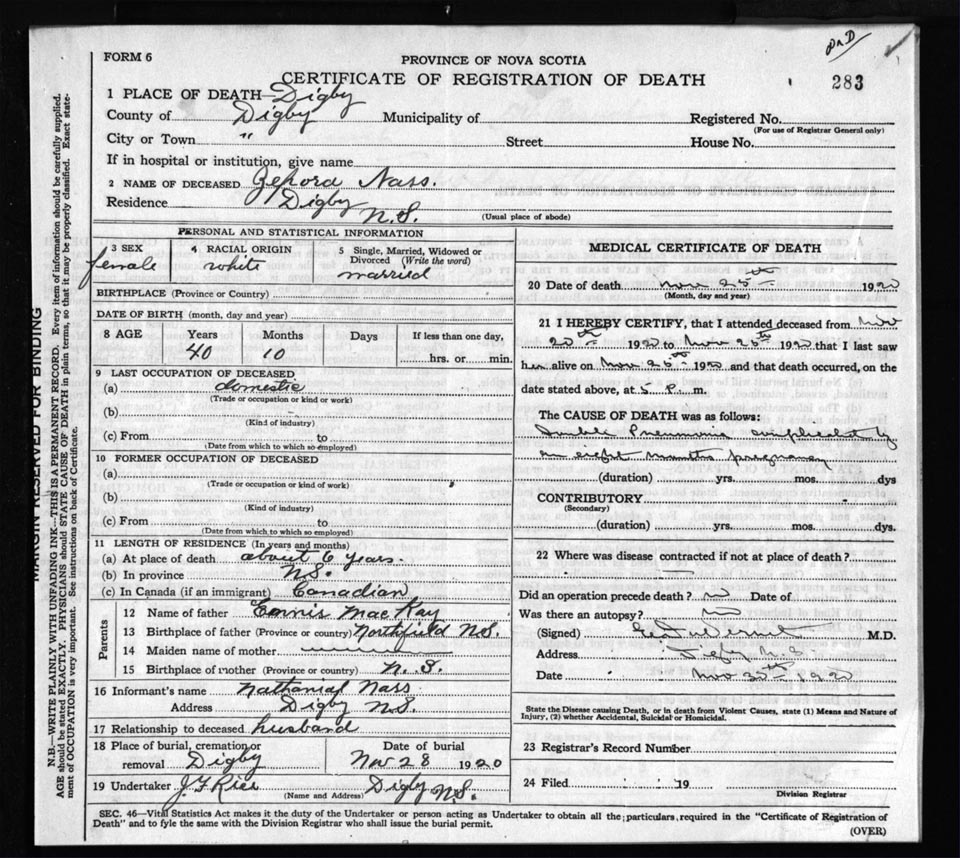 FORM 6
PROVINCE OF NOVA SCOTIA
CERTIFICATE OF REGISTRATION OF DEATH
283
1 PLACE OF DEATH—Digby
County of Digby Municipality of Registered No.
(For use of Registrar General only)
City or Town " Street House No.
If in hospital or institution, give name
2 NAME OF DECEASED Zepora Nass.
Residence Digby N.S.
(Usual place of abode)
PERSONAL AND STATISTICAL INFORMATION
3 SEX female
4 RACIAL ORIGIN white
5 Single, Married, Widowed or Divorced (Write the word) married
BIRTHPLACE (Province or Country)
DATE OF BIRTH (month, day and year)
8 AGE Years 40 Months 10 Days If less than one day, hrs. or min.
9 LAST OCCUPATION OF DECEASED
(a) domestic
(Trade or occupation or kind of work)
(b)
(Kind of industry)
(c) From to
(Date from which to which so employed)
10 FORMER OCCUPATION OF DECEASED
(a)
(Trade or occupation or kind of work)
(b)
(Kind of industry)
(c) From to
(Date from which to which so employed)
11 LENGTH OF RESIDENCE (In years and months)
(a) At place of death about 6 years.
(b) In province N.S.
(c) In Canada (if an immigrant) Canadian
Parents
12 Name of father Ennis MacKay
13 Birthplace of father (Province or country) Northfield N.S.
14 Maiden name of mother
15 Birthplace of mother (Province or country) N.S.
16 Informant's name Nathanial Nass
Address Digby N.S.
17 Relationship to deceased husband
18 Place of burial, cremation or removal Digby
Date of burial Nov 28 1920
19 Undertaker J. F. Rice Digby N.S.
(Name and Address)
MEDICAL CERTIFICATE OF DEATH
20 Date of death Nov 25th 1920
(Month, day and year)
21 I HEREBY CERTIFY, that I attended deceased from Nov
20th 1920 to Nov 25th 1920 that I last saw
her alive on Nov 25th 1920 and that death occurred, on the
date stated above, at 5 P. m.
The CAUSE OF DEATH was as follows:
Double Pneumonia complicated by
an eight months pregnancy
(duration) yrs. mos. dys
CONTRIBUTORY
(Secondary)
(duration) yrs. mos. dys.
22 Where was disease contracted if not at place of death?
Did an operation precede death? no Date of
Was there an autopsy? no
(Signed) M.D.
Address Digby N.S.
Date Nov 30th 1920
State the Disease causing Death, or in death from Violent Causes, state (1) Means and Nature of
Injury, (2) whether Accidental, Suicidal or Homicidal.
23 Registrar's Record Number
24 Filed 19
Division Registrar
SEC. 46—Vital Statistics Act makes it the duty of the Undertaker or person acting as Undertaker to obtain all the particulars required in the "Certificate of Registration of
Death" and to fyle the same with the Division Registrar who shall issue the burial permit.
(OVER)
MARGIN RESERVED FOR BINDING
N.B.—WRITE PLAINLY WITH UNFADING INK—THIS IS A PERMANENT RECORD. Every item of information should be carefully supplied.
AGE should be stated EXACTLY. PHYSICIANS should STATE CAUSE OF DEATH in plain terms, so that it may be properly classified. Exact state-
ment of OCCUPATION is very important. See instructions on back of Certificate.